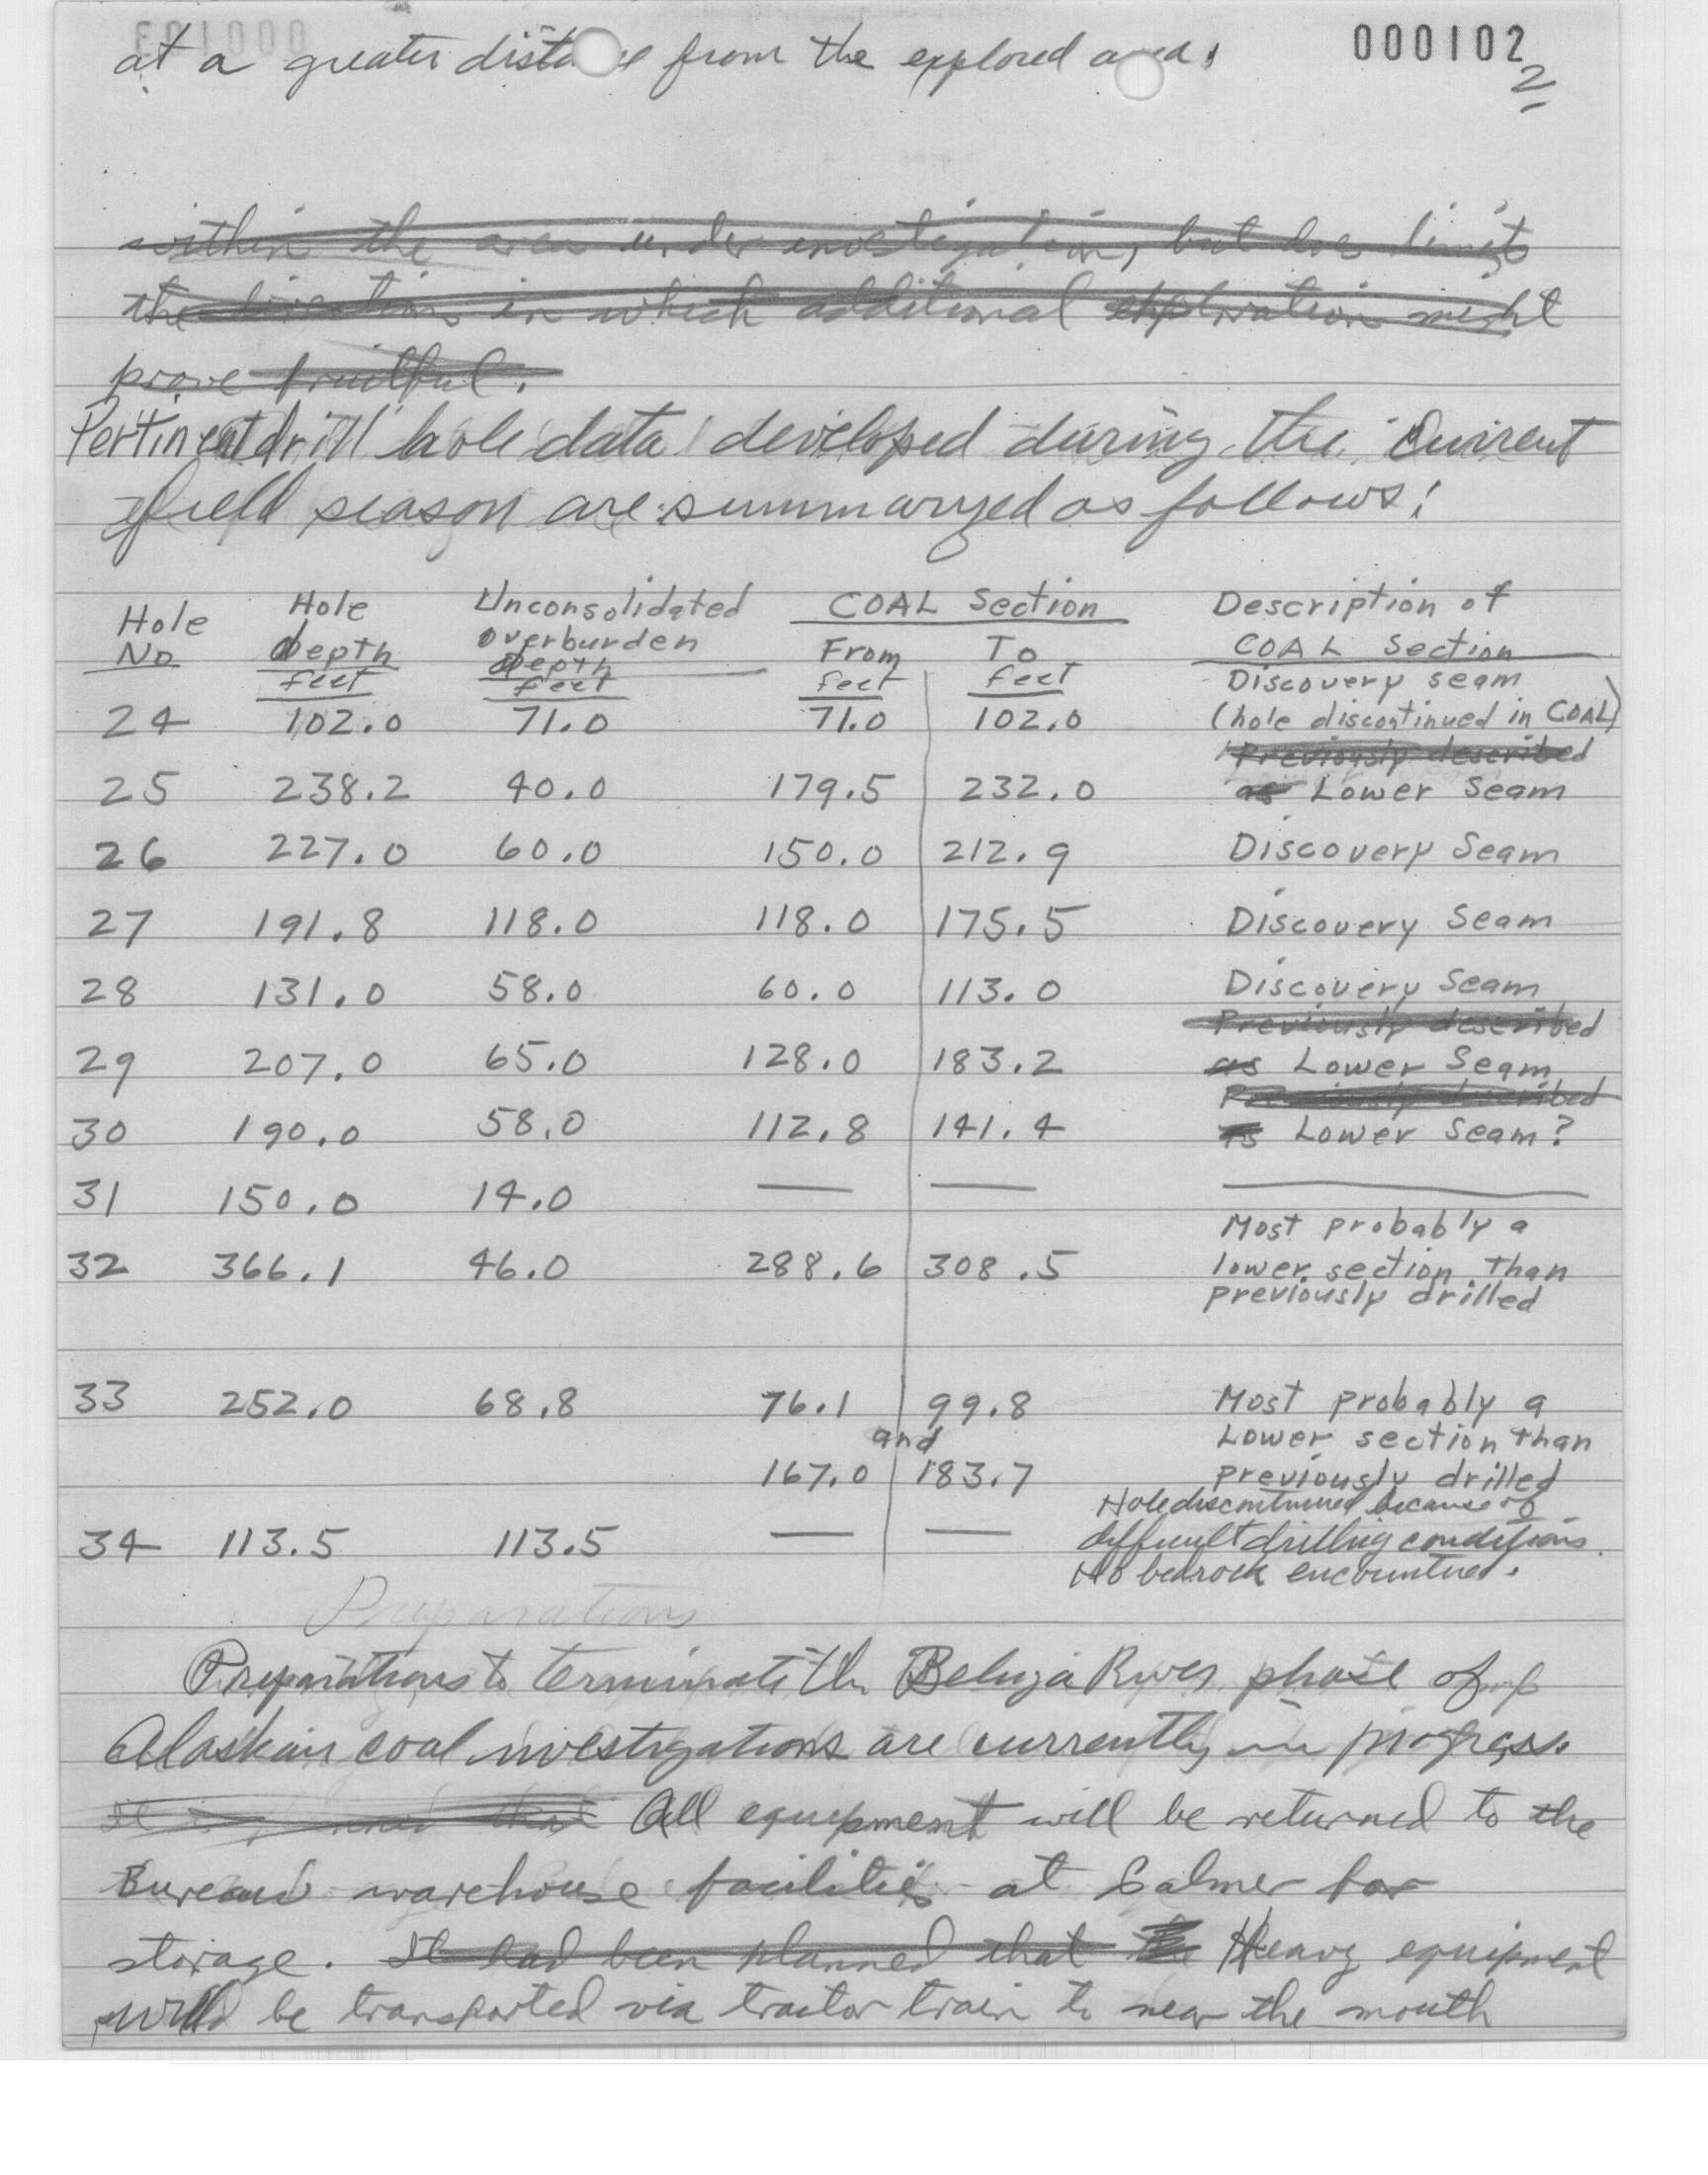 000102
at a greater distance from the explored area.
2
within the area under investigation, but does limit
the direction in which additional exploration might
prove fruitful.
Pertinent drill hole data developed during the current
field season are summaryzed as follows:
Hole No Hole depth feet Unconsolidated overburden depth feet COAL Section From feet To feet Description of COAL Section
24 102.0 71.0 71.0 102.0 Discovery seam (hole discontinued in COAL)
Previously described
25 238.2 40.0 179.5 232.0 as Lower Seam
26 227.0 60.0 150.0 212.9 Discovery Seam
27 191.8 118.0 118.0 175.5 Discovery Seam
28 131.0 58.0 60.0 113.0 Discovery Seam
Previously described
29 207.0 65.0 128.0 183.2 as Lower Seam
Previously described
30 190.0 58.0 112.8 141.4 as Lower Seam?
31 150.0 14.0 — — —
32 366.1 46.0 288.6 308.5 Most probably a lower section than previously drilled
33 252.0 68.8 76.1 99.8 Most probably a
and Lower section than
167.0 183.7 previously drilled
34 113.5 113.5 — — Hole discontinued because of difficult drilling conditions. No bedrock encountered.
Preparations
Preparations to terminate the Beluga River phase of
Alaskan coal investigations are currently in progress.
All equipment will be returned to the
Bureau warehouse facilities at Palmer for
storage. It had been planned that the Heavy equipment
will be transported via tractor train to near the mouth